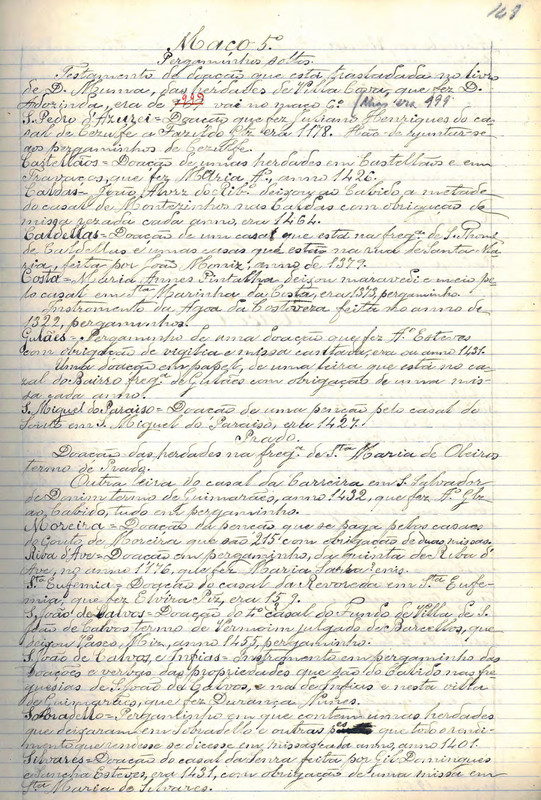 168
Maço 5º
Pergaminhos soltos.
Testamento de doação que está trasladada no livro
de D. Munna, das herdades de Villa Cova, que fez D.
Adozinda, era de 999 vai no maço 6º
S. Pedro d'Azurei = Doação que fez Juliano Henriques do ca-
sal de Cerufe a era 1178. Hão-de ajuntar-se
aos pergaminhos de
Castellãos = Doação de umas herdades em Castellãos e em
Travaços, que fez Maria Aº, anno 1426.
Caldas = João Alvrz do Rib. deixou ao Cabido a metade
do casal de Montezinhos nas Caldas com obrigação de
missa rezada cada anno, era 1464.
Caldellas = Doação de um casal que está na freg.ª de S. Thomé
de Caldellas e umas casas que estão na rua de Santa Ma-
ria, feita por João Moniz, anno de 1379.
Costa = Maria Annes Pintalha, deixou maravedi e meio pe-
lo casal em Stª Marinha da Costa, era 1373, pergaminho.
Instromento da Agoa da feita no anno de
1322, pergaminhos.
Gulães = Pergaminho de uma doação que fez Aº Esteves
com obrigação de vigilia e missa cantada, era ou anno 1431.
Uma doação em papel, de uma leira que está no ca-
zal do Bairro freg.ª de Gulães com obrigação de uma mis-
sa cada anno.
S. Miguel do Paraiso = Doação de uma penção pelo casal do
Souto em S. Miguel do Paraiso, era 1427.
Prado.
Doação das herdades na freg.ª de Stª Maria de Oleiros
termo de Prado.
Outra leira do casal da Carreira em S. Salvador
de Donim termo de Guimarães, anno 1432, que fez Aº Glz
ao Cabido, tudo em pergaminho.
Moreira = Doação da penção que se paga pelos casaes
do Couto de Moreira que são 215 com obrigação de duas missas.
Riba d'Ave = Doação em pergaminho, da quinta de Riba d'
Ave, no anno 1776, que fez Maria
Stª Eufemia = Doação do casal da Revoreda em Stª Eufe-
mia, que fez Elvira Piz, era 159.
S. João de Calvos = Doação do 4º casal do Fundo de Villa de S.
João de Calvos termo de Vermoim julgado de Barcellos, que
deixou Vasco Miz, anno 1455, pergaminho.
S. João de Calvos, e Infias = Instromento em pergaminho das
doações e verbas das propriedades que são do Cabido nas fre-
guesias de S. João de Calvos, e na de Infias e nesta villa
de Guimarães, que fez Durança Nunes.
Sobradello = Pergaminho em que contem umas herdades
que deixaram em Sobradello e outras pes que todo o rendi-
mento que rendesse se dicesse em missas cada anno, anno 1401.
Silvares = Doação do casal da tenra feita por Gil Domingues
e Sancha Esteves, era 1431, com obrigação de uma missa em
Stª Maria de Silvares.